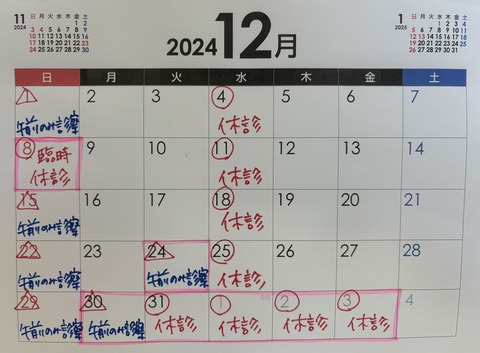 11
2024
日 月 火 水 木 金 土
1 2
3 4 5 6 7 8 9
10 11 12 13 14 15 16
17 18 19 20 21 22 23
24 25 26 27 28 29 30
2024 12月
1
2025
日 月 火 水 木 金 土
1 2 3 4
5 6 7 8 9 10 11
12 13 14 15 16 17 18
19 20 21 22 23 24 25
26 27 28 29 30 31
日 月 火 水 木 金 土
1 2 3 4 5 6 7
午前のみ診察 休診
8 臨時 9 10 11 12 13 14
休診 休診
15 16 17 18 19 20 21
午前のみ診察 休診
22 23 24 25 26 27 28
午前のみ診察 午前のみ診察 休診
29 30 31 1 2 3 4
午前のみ診察 午前のみ診察 休診 休診 休診 休診